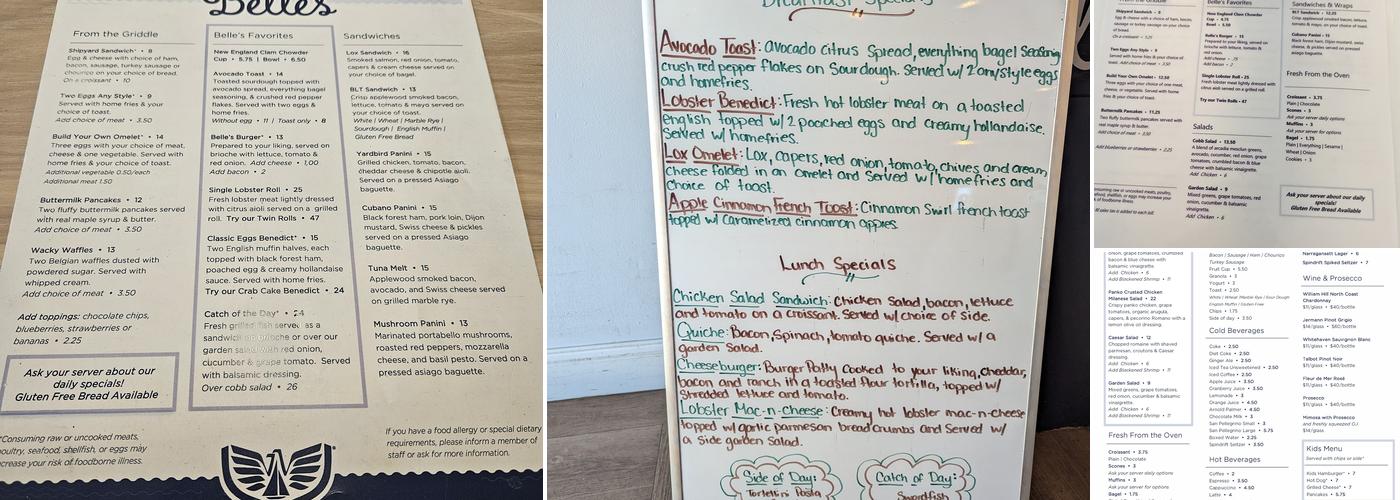 Belles
From the Griddle
Shipyard Sandwich* • 8
Egg & cheese with choice of ham,
bacon, sausage, turkey sausage or
chourico on your choice of bread.
On a croissant • 10
Two Eggs Any Style* • 9
Served with home fries & your
choice of toast.
Add choice of meat • 3.50
Build Your Own Omelet* • 14
Three eggs with your choice of meat,
cheese & one vegetable. Served with
home fries & your choice of toast.
Additional vegetable 0.50/each
Additional meat 1.50
Buttermilk Pancakes • 12
Two fluffy buttermilk pancakes served
with real maple syrup & butter.
Add choice of meat • 3.50
Wacky Waffles • 13
Two Belgian waffles dusted with
powdered sugar. Served with
whipped cream.
Add choice of meat • 3.50
Add toppings: chocolate chips,
blueberries, strawberries or
bananas • 2.25
Ask your server about our
daily specials!
Gluten Free Bread Available
*Consuming raw or undercooked meats,
poultry, seafood, shellfish, or eggs may
increase your risk of foodborne illness.
Belle's Favorites
New England Clam Chowder
Cup • 5.75 | Bowl • 6.50
Avocado Toast • 14
Toasted sourdough topped with
avocado spread, everything bagel
seasoning, & crushed red pepper
flakes. Served with two eggs &
home fries.
Without egg • 11 | Toast only • 8
Belle's Burger* • 13
Prepared to your liking, served on
brioche with lettuce, tomato &
red onion. Add cheese • 1.00
Add bacon • 2
Single Lobster Roll • 25
Fresh lobster meat lightly dressed
with citrus aioli served on a grilled
roll. Try our Twin Rolls • 47
Classic Eggs Benedict* • 15
Two English muffin halves, each
topped with black forest ham,
poached egg & creamy hollandaise
sauce. Served with home fries.
Try our Crab Cake Benedict • 24
Catch of the Day* • 24
Fresh grilled fish served as a
sandwich on brioche or over our
garden salad with red onion,
cucumber & grape tomato. Served
with balsamic dressing.
Over cobb salad • 26
Sandwiches
Lox Sandwich • 16
Smoked salmon, red onion, tomato,
capers & cream cheese served on
your choice of bagel.
BLT Sandwich • 13
Crisp applewood smoked bacon,
lettuce, tomato & mayo served on
your choice of toast.
White | Wheat | Marble Rye |
Sourdough | English Muffin |
Gluten Free Bread
Yardbird Panini • 15
Grilled chicken, tomato, bacon,
cheddar cheese & chipotle aioli.
Served on a pressed Asiago
baguette.
Cubano Panini • 15
Black forest ham, pork loin, Dijon
mustard, Swiss cheese & pickles
served on a pressed Asiago
baguette.
Tuna Melt • 15
Applewood smoked bacon,
avocado, and Swiss cheese served
on grilled marble rye.
Mushroom Panini • 13
Marinated portabello mushrooms,
roasted red peppers, mozzarella
cheese, and basil pesto. Served on a
pressed asiago baguette.
If you have a food allergy or special dietary
requirements, please inform a member of
staff or ask for more information.
Breakfast Specials
Avocado Toast: Avocado Citrus Spread, everything bagel Seasoning
crush red pepper flakes on Sourdough. Served w/ 2 any style eggs
and homefries.
Lobster Benedict: Fresh hot lobster meat on a toasted
english topped w/ 2 poached eggs and creamy hollandaise.
Served w/ homefries.
Lox Omelet: Lox, capers, red onion, tomato, chives and cream
cheese folded in an omelet and Served w/ homefries and
choice of toast.
Apple Cinnamon French Toast: Cinnamon Swirl french toast
topped w/ Caramelized cinnamon apples.
Lunch Specials
Chicken Salad Sandwich: Chicken Salad, bacon, lettuce
and tomato on a croissant. Served w/ choice of side.
Quiche: Bacon, Spinach, tomato quiche. Served w/ a
garden Salad.
Cheeseburger: Burger Patty Cooked to your liking, cheddar,
bacon and ranch in a toasted flour tortilla, topped w/
Shredded lettuce and tomato.
Lobster Mac-n-cheese: Creamy hot lobster mac-n-cheese
topped w/ garlic parmesan breadcrumbs and Served w/
a side garden Salad.
Side of Day:
Tortellini Pasta
Catch of Day:
Swordfish
From the Griddle
Shipyard Sandwich • 8
Egg & cheese with a choice of ham, bacon,
Two Eggs Any Style • 9
Build Your Own Omelet • 12.50
Buttermilk Pancakes • 11.25
Two fluffy buttermilk pancakes served with
real maple syrup & butter.
Add choice of meat • 3.50
Add blueberries or strawberries • 2.25
Belle's Favorites
New England Clam Chowder
Cup • 4.75
Bowl • 5.50
Belle's Burger • 15
Prepared to your liking, served on
brioche with lettuce, tomato &
red onion.
Add cheese • .75
Add bacon • 2
Single Lobster Roll • 25
Fresh lobster meat lightly dressed with
citrus aioli served on a grilled roll.
Try our Twin Rolls • 47
Salads
Cobb Salad • 13.50
A blend of arcadia mesclun greens,
avocado, cucumber, red onion, grape
tomatoes, crumbled bacon & blue
cheese with balsamic vinaigrette.
Add Chicken • 6
Garden Salad • 9
Mixed greens, grape tomatoes, red
onion, cucumber & balsamic
vinaigrette.
Add Chicken • 6
Sandwiches & Wraps
BLT Sandwich • 12.25
Crisp applewood smoked bacon, lettuce,
Cubano Panini • 15
Black forest ham, Dijon mustard, swiss
cheese, & pickles served on pressed
asiago baguette.
Fresh From the Oven
Croissant • 3.75
Plain | Chocolate
Scones • 3
Ask your server daily options
Muffins • 3
Ask your server for options
Bagel • 1.75
Plain | Everything | Sesame |
Wheat | Onion
Cookies • 3
Ask your server about our daily
specials!
Gluten Free Bread Available
onion, grape tomatoes, crumbled
bacon & blue cheese with
balsamic vinaigrette.
Add Chicken • 6
Add Blackened Shrimp • 11
Panko Crusted Chicken
Milanese Salad • 22
Crispy panko chicken, grape
tomatoes, organic arugula,
capers, & pecorino Romano with a
lemon olive oil dressing.
Caesar Salad • 12
Chopped romaine with shaved
parmesan, croutons & Caesar
dressing.
Add Chicken • 6
Add Blackened Shrimp • 11
Garden Salad • 9
Mixed greens, grape tomatoes,
red onion, cucumber & balsamic
vinaigrette.
Add Chicken • 6
Add Blackened Shrimp • 11
Fresh From the Oven
Croissant • 3.75
Plain | Chocolate
Scones • 3
Ask your server daily options
Muffins • 3
Ask your server for options
Bagel • 1.75
Bacon / Sausage / Ham / Chourico
Turkey Sausage
Fruit Cup • 5.50
Granola • 3
Yogurt • 3
Toast • 2.50
White / Wheat / Marble Rye / Sour Dough
English Muffin / Gluten Free
Chips • 1.75
Side of day • 3.50
Cold Beverages
Coke • 2.50
Diet Coke • 2.50
Ginger Ale • 2.50
Iced Tea Unsweetened • 2.50
Iced Coffee • 2.50
Apple Juice • 3.50
Cranberry Juice • 3.50
Lemonade • 3
Orange Juice • 4.50
Arnold Palmer • 4.50
Chocolate Milk • 3
San Pellegrino Small • 3
San Pellegrino Large • 5.75
Boxed Water • 2.25
Spindrift Seltzer • 3.50
Hot Beverages
Coffee • 2
Espresso • 3.50
Cappuccino • 4.50
Latte • 4
Narragansett Lager • 6
Spindrift Spiked Seltzer • 7
Wine & Prosecco
William Hill North Coast
Chardonnay
$11/glass • $40/bottle
Jermann Pinot Grigio
$14/glass • $60/bottle
Whitehaven Sauvignon Blanc
$11/glass • $40/bottle
Talbot Pinot Noir
$11/glass • $40/bottle
Fleur de Mer Rosé
$11/glass • $40/bottle
Prosecco
$11/glass • $40/bottle
Mimosa with Prosecco
and freshly squeezed O.J.
$14/glass
Kids Menu
Served with chips or side*
Kids Hamburger* • 7
Hot Dog* • 7
Grilled Cheese* • 7
Pancakes • 5.75